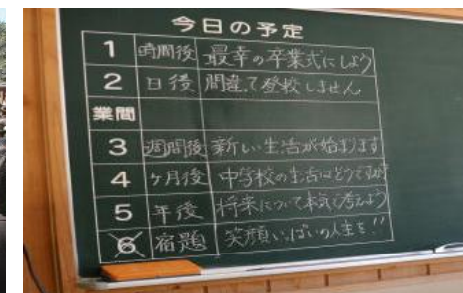 今日の予定
1 時間後 最幸の卒業式にしよう
2 日後 間違って登校しません
業間
3 週間後 新しい生活が始まります
4 ケ月後 中学校の生活はどうですか
5 年後 将来について本気で考えよう
6 宿題 笑顔いっぱいの人生を!!